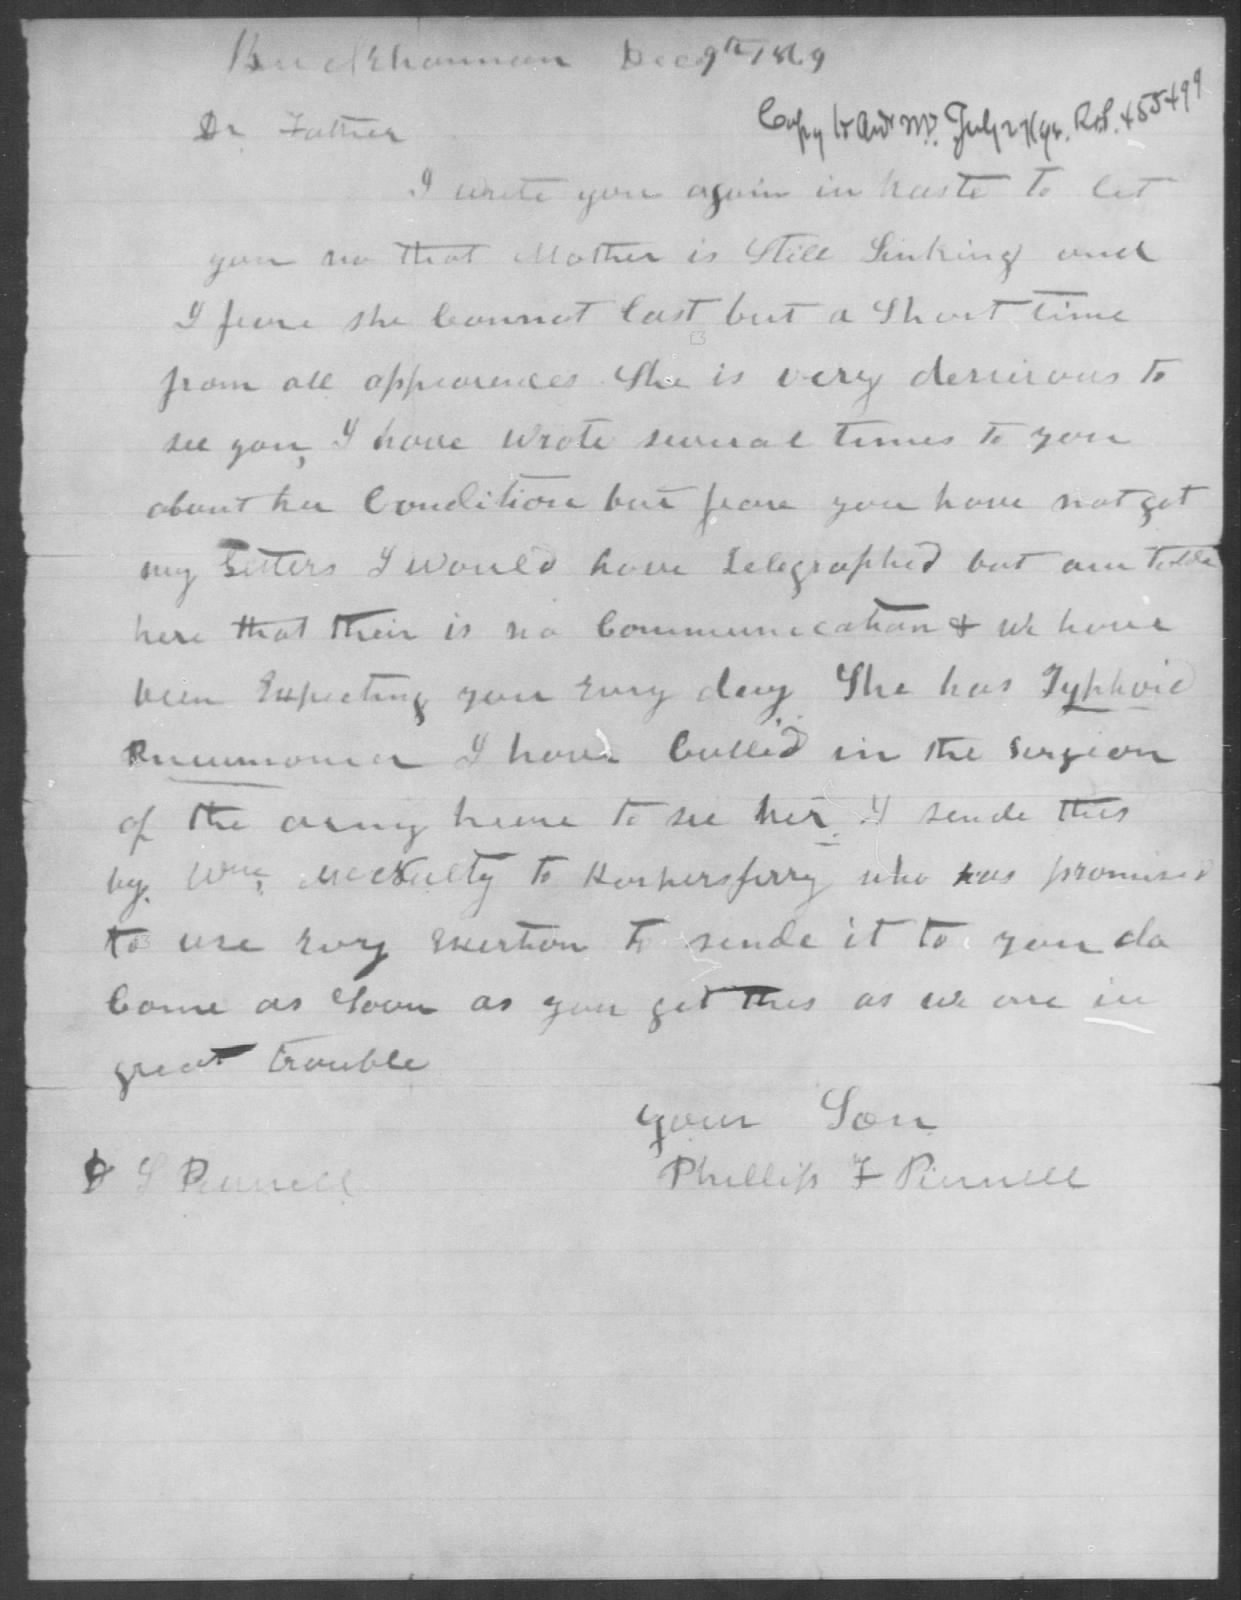 Buckhannon Dec 9th 1869
Dr Father
Copy to July 27 R&P. 455499
I write you again in haste to let
you no that Mother is Still Sinking and
I feare she Cannot last but a Short time
from all appearences She is very desierous to
see you, I have Wrote several times to you
about her Condition but feare you have not got
my Letters I Would have Telegraphed but am tolde
here that their is no Communication & we have
been Expecting you Evry day She has Typhoid
Pneumonia I have Called in the Surgeon
of the army heare to see her. I sende this
by. Wm, McNulty to Harpersferry who has promised
to use Evry Exertion to sende it to you do
Come as Soon as you get this as we are in
great trouble
your Son
Phillip F Pinnell
D S Pinnell